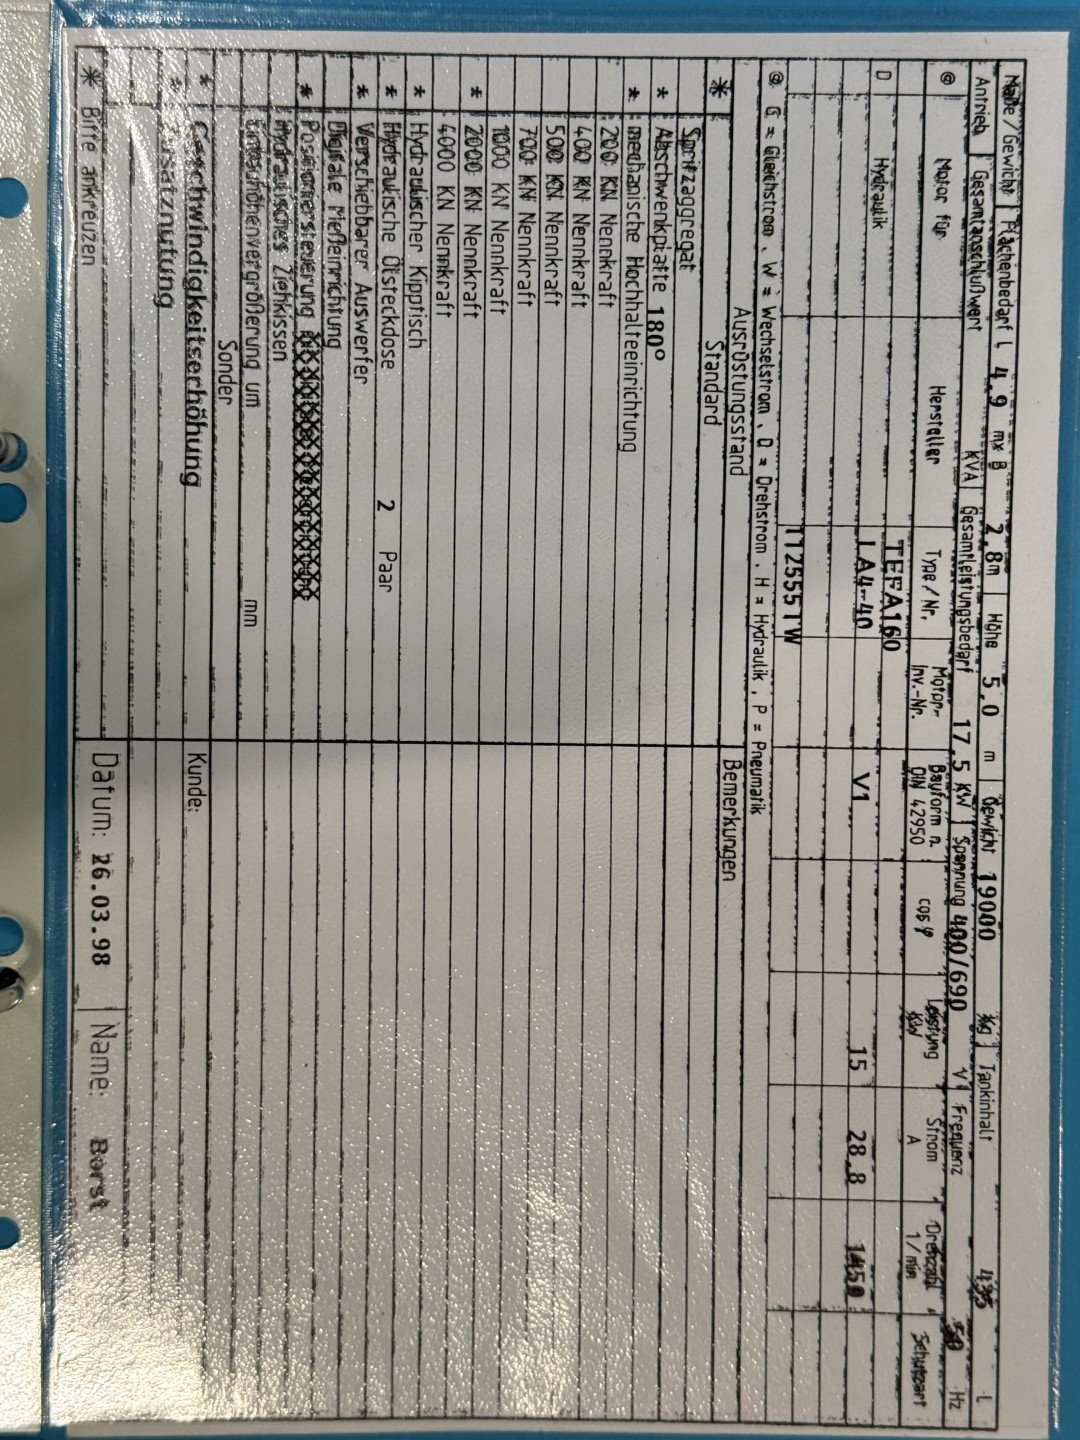 Maße/Gewicht | Flächenbedarf L 4,9 m x B 2,8 m | Höhe 5,0 m | Gewicht 19000 kg | Tankinhalt 435 l
Antrieb | Gesamtanschlußwert KVA | Gesamtleistungsbedarf 17,5 KW | Spannung 400/690 V | Frequenz 50 Hz
@ Motor für Hersteller Type/Nr. Motor-Inv.-Nr. Bauform n. DIN 42950 cos φ Leistung KW Strom A Drehzahl 1/min Schutzart
TEFA160
D Hydraulik LA4-40 V1 15 28.8 1450
112555TW
@ G = Gleichstrom, W = Wechselstrom, D = Drehstrom, H = Hydraulik, P = Pneumatik
Ausrüstungsstand Bemerkungen
* Standard
Spritzaggregat
* Abschwenkplatte 180°
* mechanische Hochhalteeinrichtung
200 KN Nennkraft
400 KN Nennkraft
500 KN Nennkraft
700 KN Nennkraft
1000 KN Nennkraft
* 2000 KN Nennkraft
4000 KN Nennkraft
* Hydraulischer Kipptisch
* Hydraulische Ölsteckdose 2 Paar
* Verschiebbarer Auswerfer
Digitale Meßeinrichtung
* Positioniersteuerung
Hydraulisches Ziehkissen
Einbauhöhenvergrößerung um mm
Sonder
* Geschwindigkeitserhöhung Kunde:
* Zusatznutung
* Bitte ankreuzen Datum: 26.03.98 Name: Borst